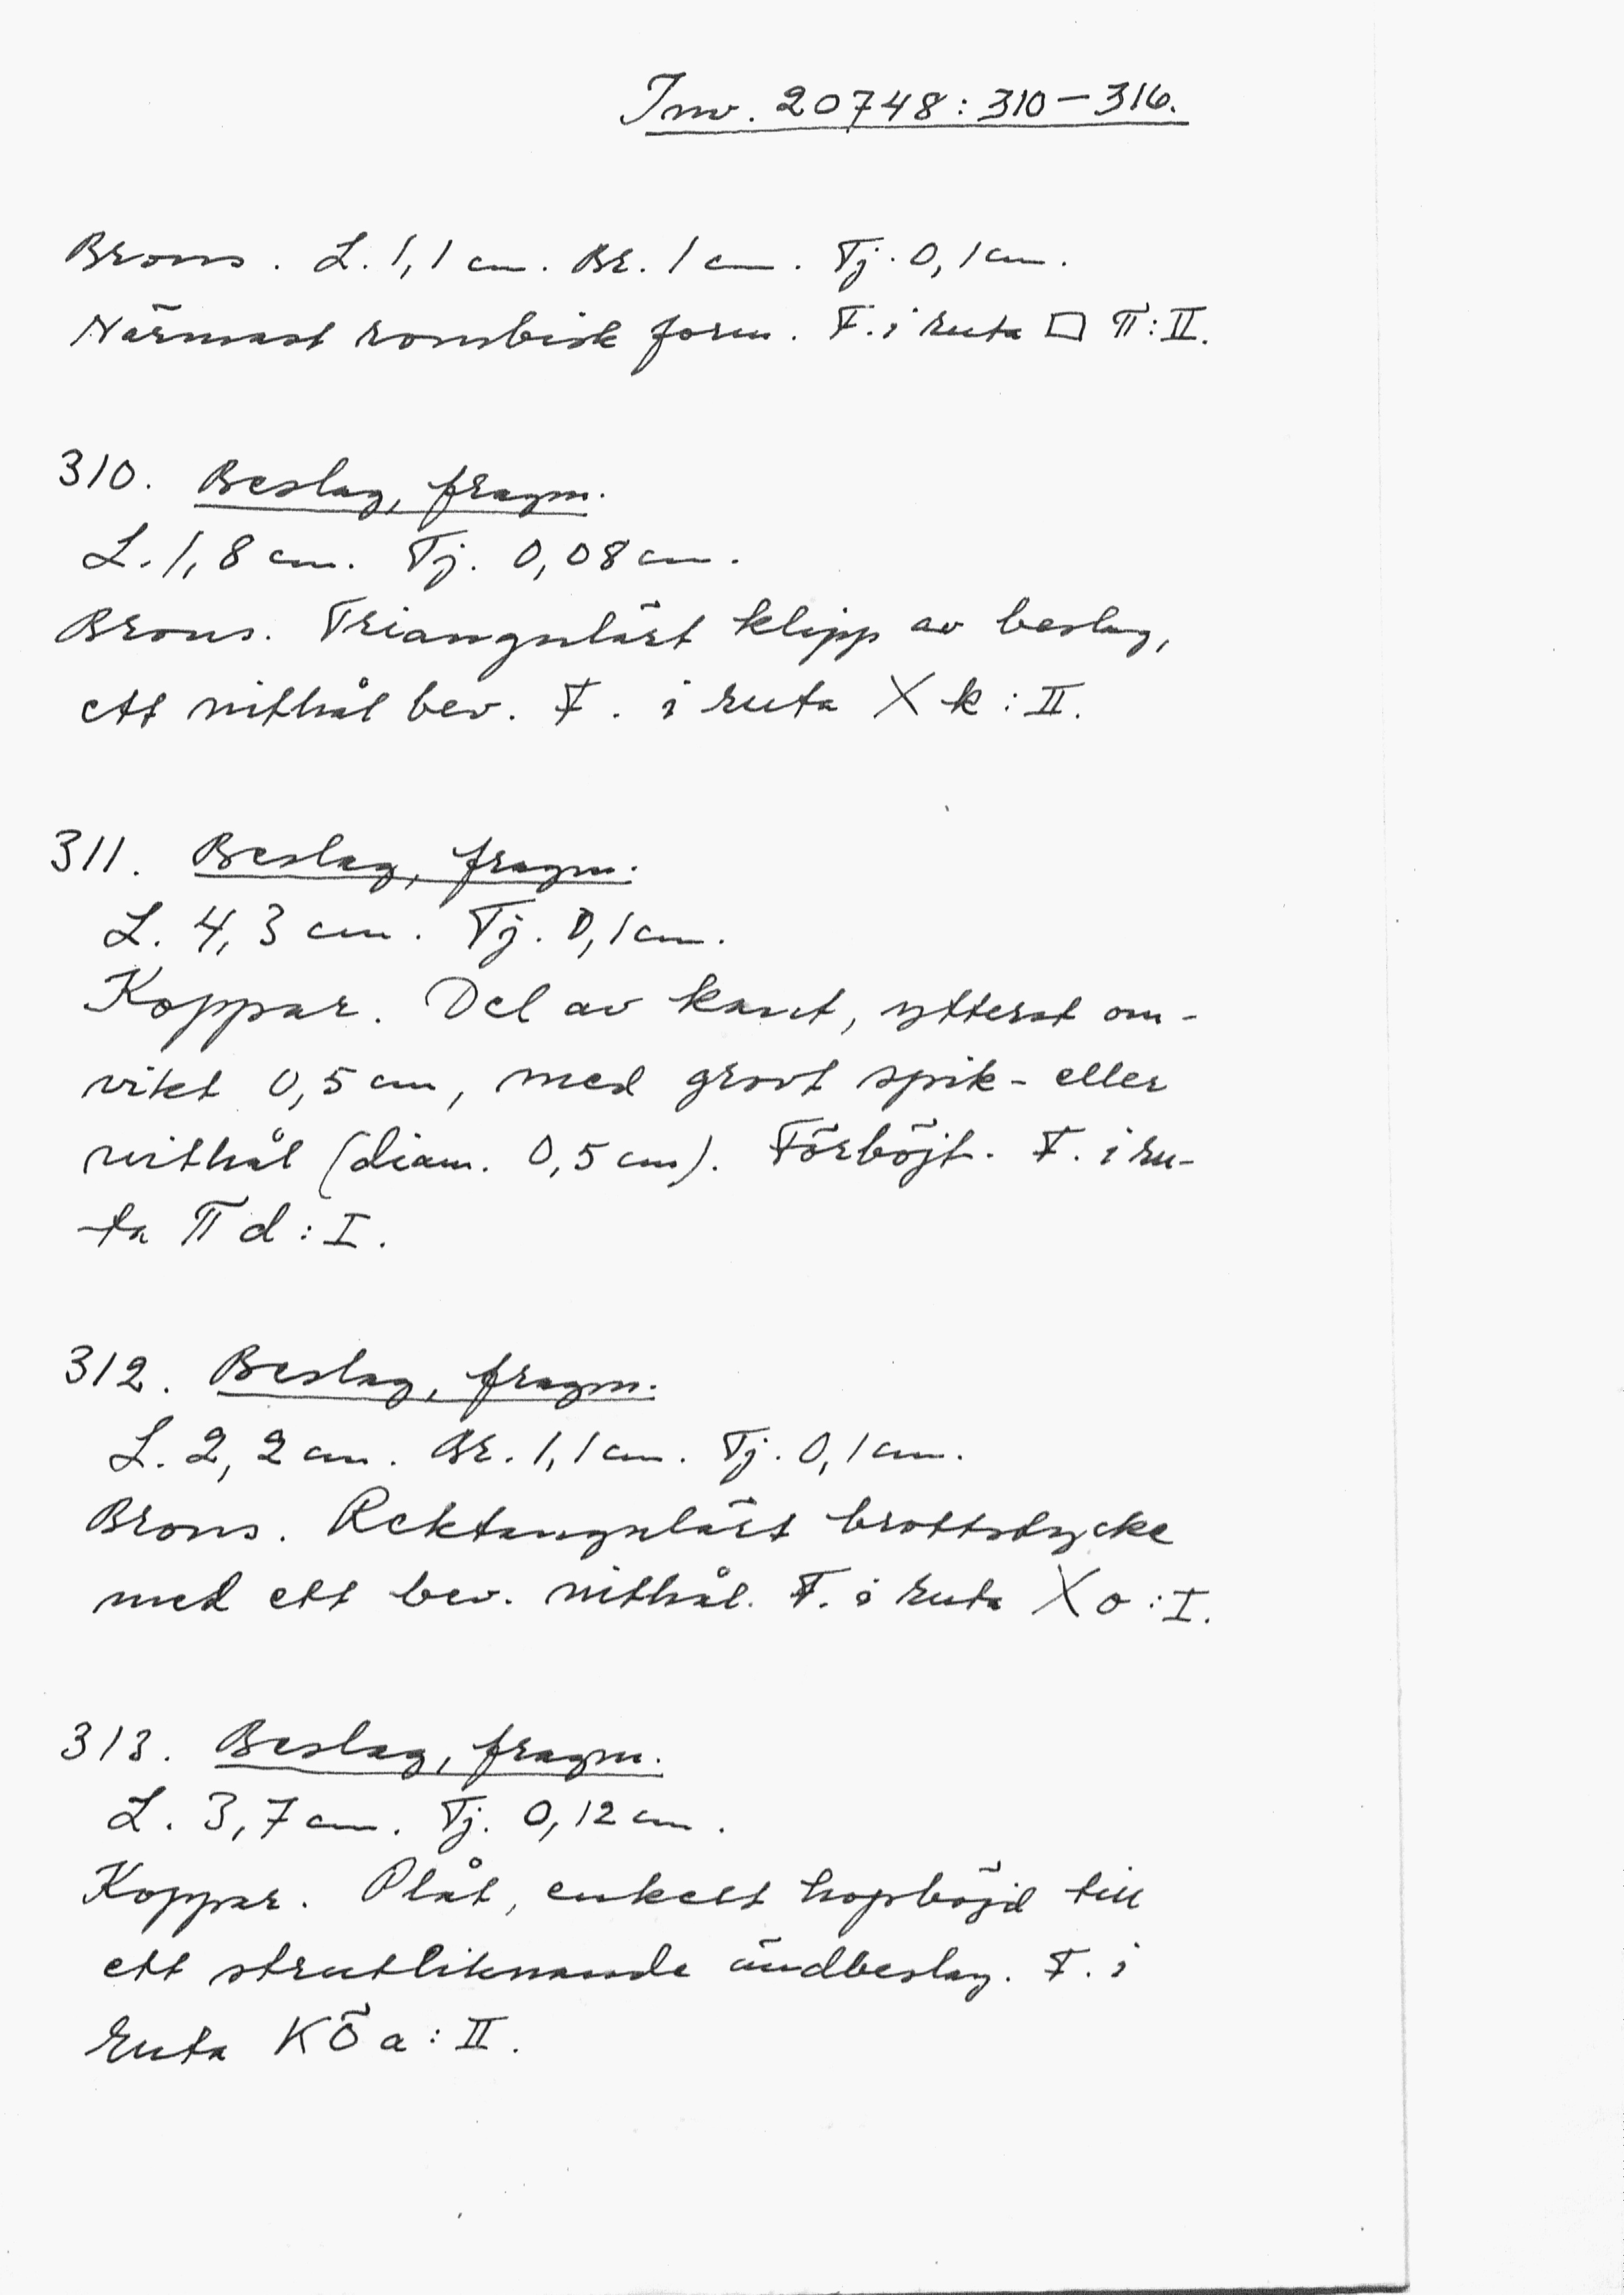 Inv. 20748:310-316.
Brons. L. 1,1 cm. Br. 1 cm. Tj. 0,1 cm.
Närmast rombisk form. F. i ruta □ π:II.
310. Beslag, fragm.
L. 1,8 cm. Tj. 0,08 cm.
Brons. Triangulärt klipp av beslag,
ett nithål bev. F. i ruta X k:II.
311. Beslag, fragm.
L. 4,3 cm. Tj. 0,1 cm.
Koppar. Del av kant, ytterst om-
vikt 0,5 cm, med grovt spik- eller
nithål (diam. 0,5 cm). Förböjt. F. i ru-
ta π d:I.
312. Beslag, fragm.
L. 2,2 cm. Br. 1,1 cm. Tj. 0,1 cm.
Brons. Rektangulärt brottstycke
med ett bev. nithål. F. i ruta X o:I.
313. Beslag, fragm.
L. 3,7 cm. Tj. 0,12 cm.
Koppar. Plåt, enkelt hopböjd till
ett strutliknande ändbeslag. F. i
ruta KÖ a:II.